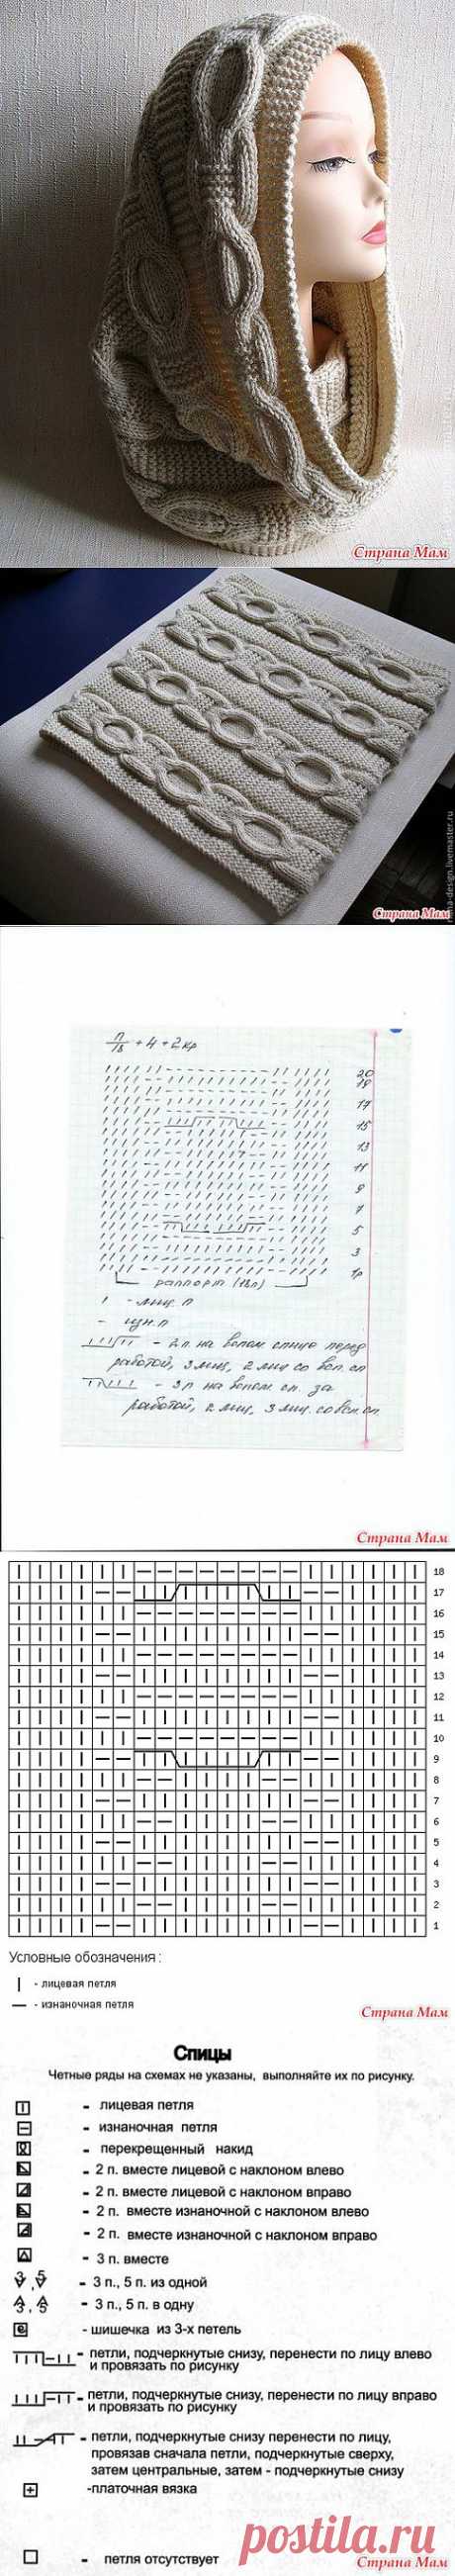 Страна Мам
Страна Мам
n/18 + 4 + 2 кр
20
19
17
15
13
11
9
7
5
3
1р
раппорт (18п)
- лиц. п
- изн. п
- 2 п. на вспом. спицу перед
работой, 3 лиц, 2 лиц со всп. сп
- 3 п на вспом. сп. за
работой, 2 лиц, 3 лиц. со всп. сп.
Страна Мам
18
17
16
15
14
13
12
11
10
9
8
7
6
5
4
3
2
1
Условные обозначения :
- лицевая петля
- изнаночная петля
Страна Мам
Спицы
Четные ряды на схемах не указаны, выполняйте их по рисунку.
- лицевая петля
- изнаночная петля
- перекрещенный накид
- 2 п. вместе лицевой с наклоном влево
- 2 п. вместе лицевой с наклоном вправо
- 2 п. вместе изнаночной с наклоном влево
- 2 п. вместе изнаночной с наклоном вправо
- 3 п. вместе
3, 5 - 3 п., 5 п. из одной
3, 5 - 3 п., 5 п. в одну
- шишечка из 3-х петель
- петли, подчеркнутые снизу, перенести по лицу влево
и провязать по рисунку
- петли, подчеркнутые снизу, перенести по лицу вправо
и провязать по рисунку
- петли, подчеркнутые снизу перенести по лицу,
провязав сначала петли, подчеркнутые сверху,
затем центральные, затем - подчеркнутые снизу
-платочная вязка
- петля отсутствует
Страна Мам
postila.ru